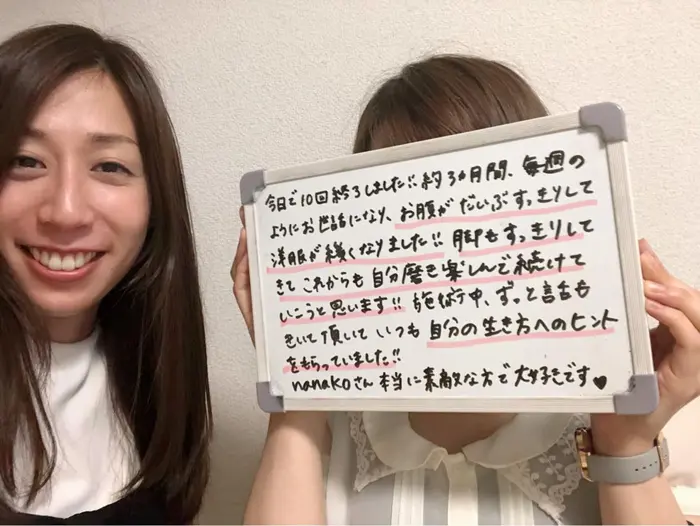 今日で10回終了しました!! 約3カ月間、毎週の
ようにお世話になり、お腹がだいぶすっきりして
洋服が緩くなりました!! 脚もすっきりして
きてこれからも自分磨き楽しんで続けて
いこうと思います!! 施術中、ずっと話も
きいて頂いていつも自分の生き方へのヒント
をもらっていました!!
nanakoさん本当に素敵な方で大好きです♥